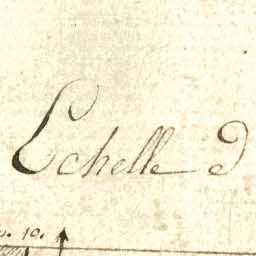 Echelle d
10.